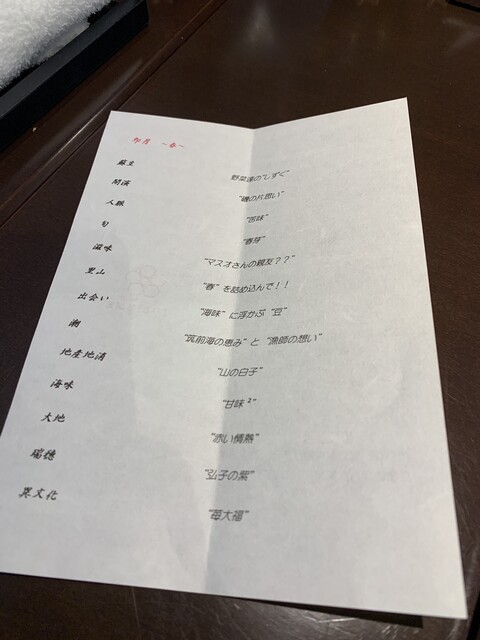 卯月 ～春～
蘇生 野菜達の“しずく”
開演 “磯の片思い”
人蝦 “苦味”
旬 “春芽”
滋味 “マスオさんの親友？？”
里山 “春”を詰め込んで！！
出会い “海味”に浮かぶ“豆”
潮 “筑前海の恵み”と“漁師の想い”
地産地消 “山の白子”
海味 “甘味²”
大地 “赤い情熱”
瑞穂 “弘子の紫”
異文化 “苺大福”